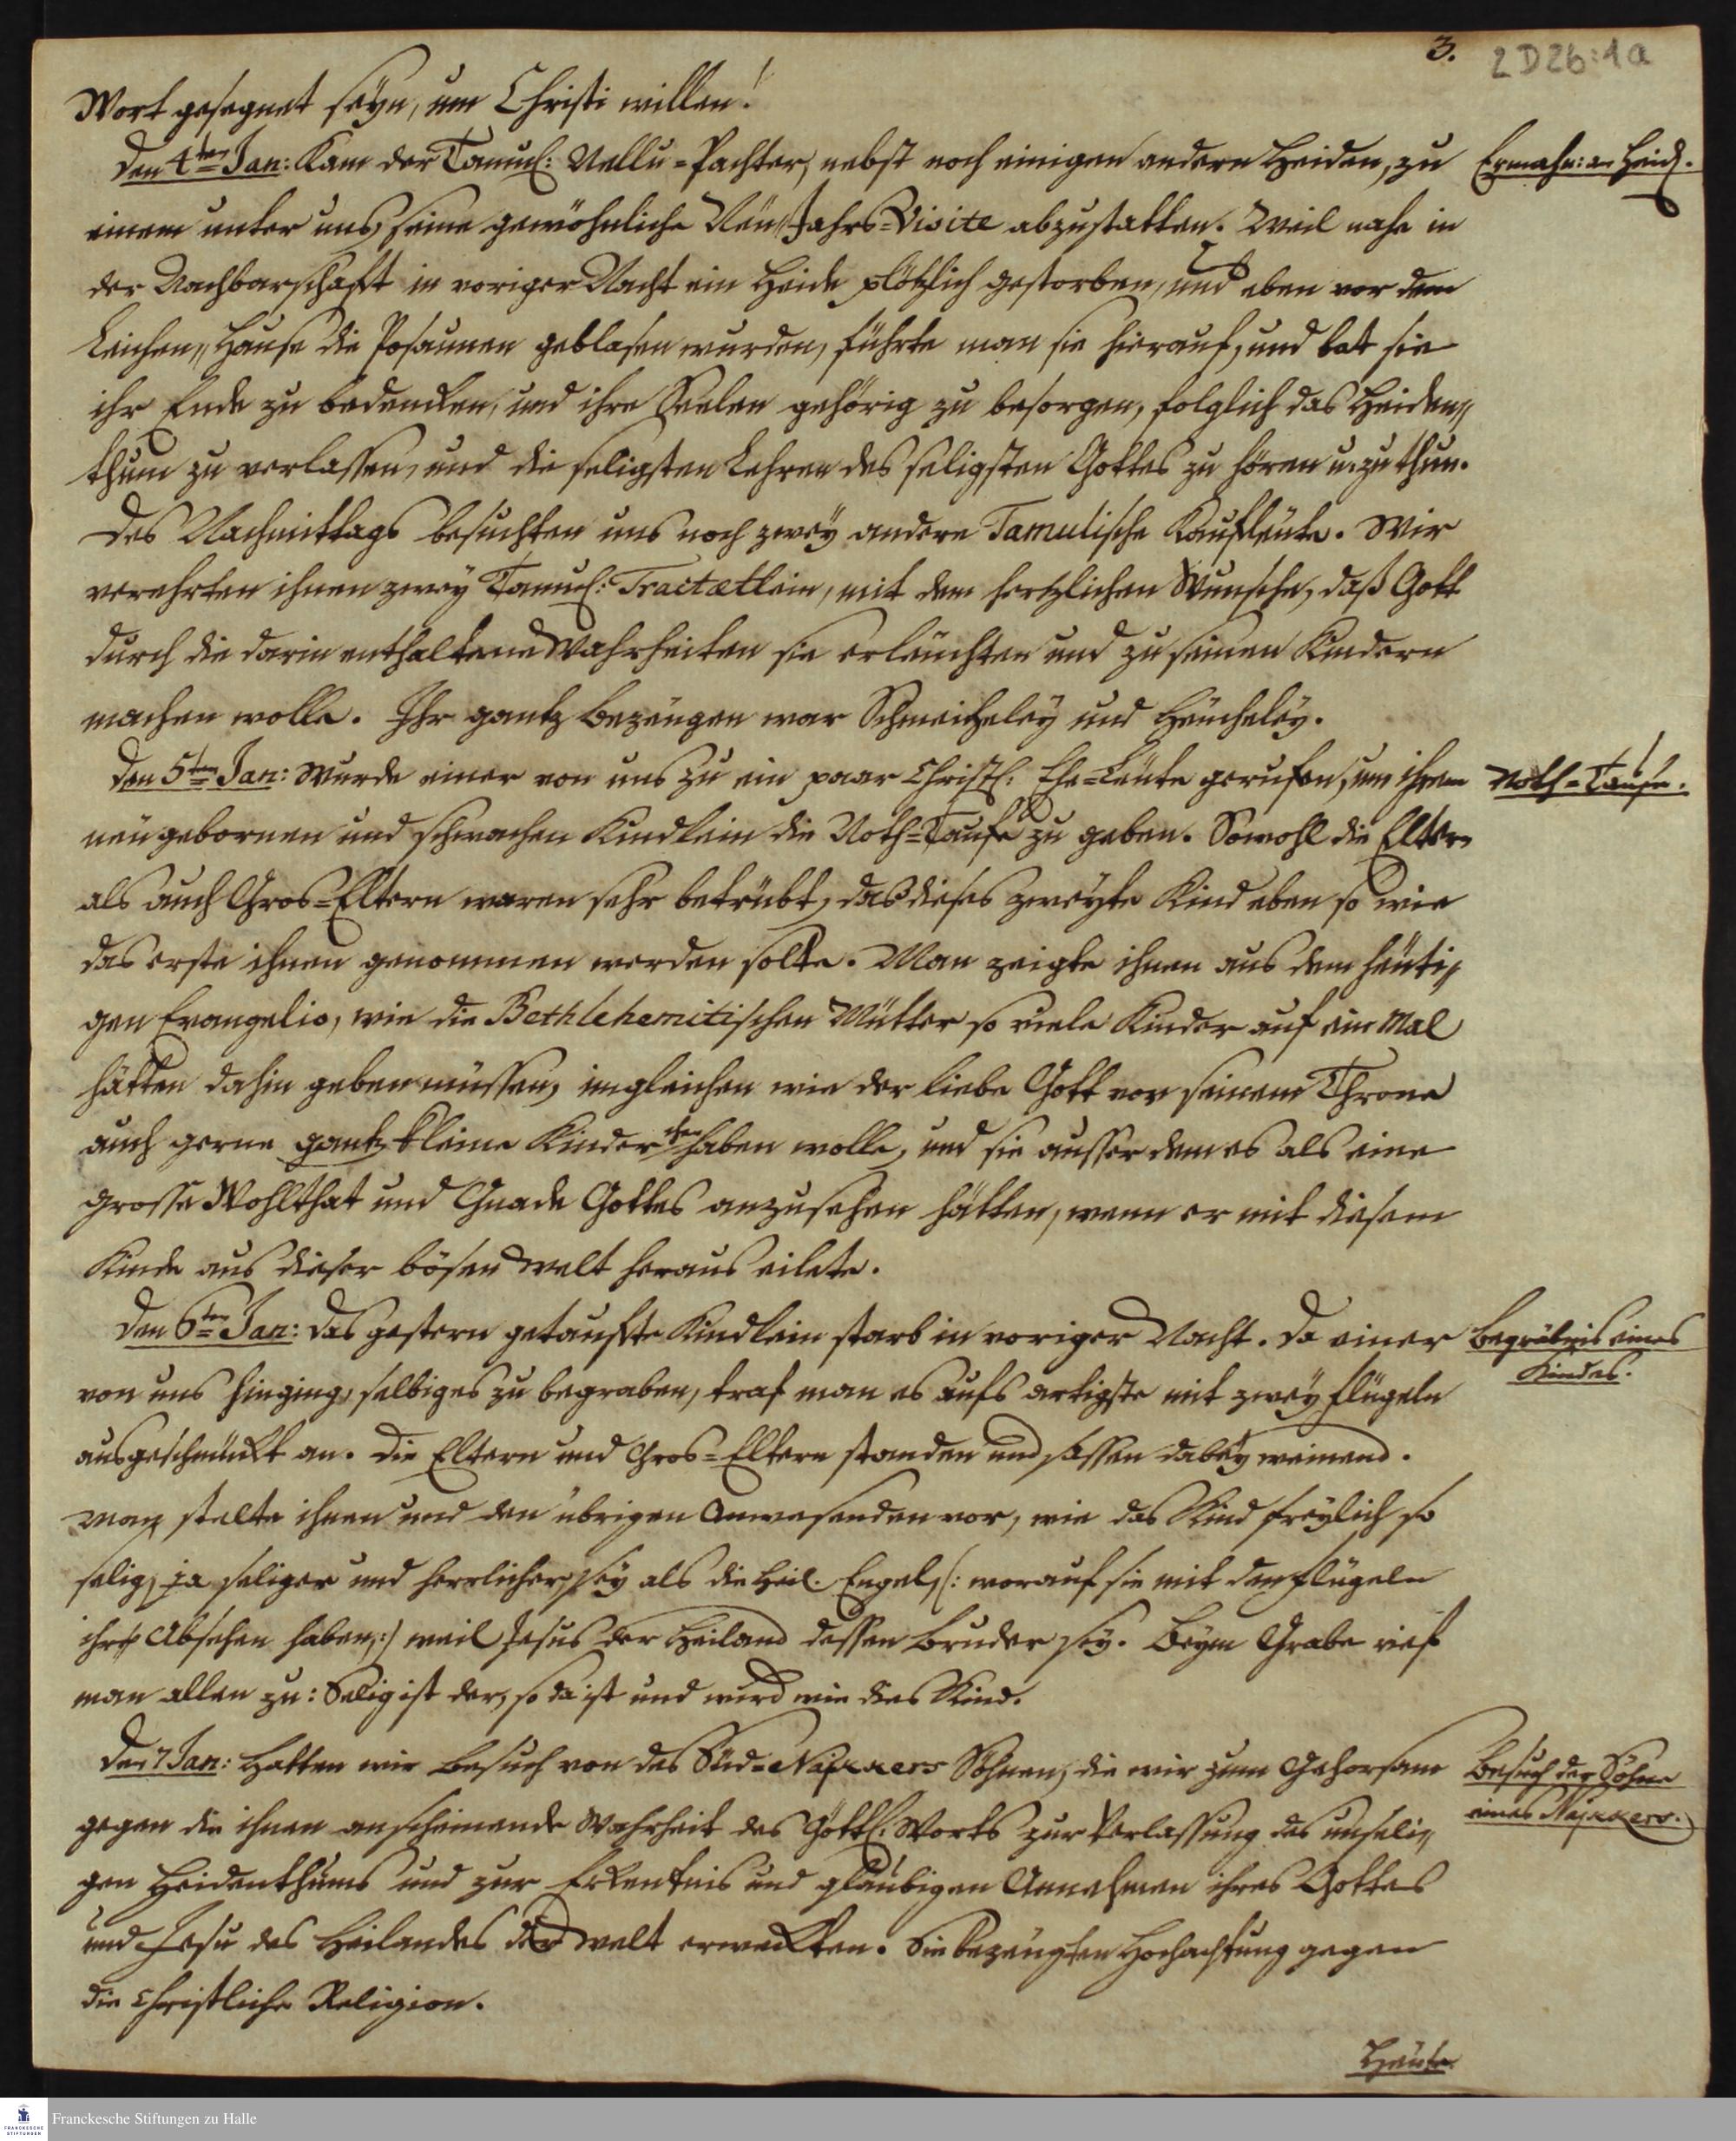 3.
2 D2b:1a
Wort gesegnet seÿn, um Christi willen!
Den 4ten Jan: Kam der Tamul: Nellu-Pachter, nebst noch einigen andern Heiden, zu
Ermahn: an Heid.
einem unter uns, seine gewöhnliche Neü-Jahrs-Visite abzustatten. Weil nahe in
der Nachbarschafft in voriger Nacht ein Heide plötzlich gestorben, und eben vor dem
Leichen-Hause die Posaunen geblasen wurden, führte man sie hierauf, und bat sie
ihr Ende zu bedencken, und ihre Seelen gehörig zu besorgen, folglich das Heiden-
thum zu verlassen, und die seligsten Lehren des seligsten Gottes zu hören u. zu thun.
Des Nachmittags besuchten uns noch zweÿ andere Tamulische Kaufleüte. Wir
verehrten ihnen zweÿ Tamul: Tractætlein, mit dem hertzlichen Wunsche, daß Gott
durch die darin enthaltene Wahrheiten sie erleüchten und zu seinen Kindern
machen wolle. Ihr gantz bezeügen war Schmeicheleÿ und Heücheleÿ.
Den 5ten Jan: Wurde einer von uns zu ein paar Christl: Ehe-Leüte gerufen, um ihrem
Noth-Taufe.
neügebornen und schwachen Kindlein die Noth-Taufe zu geben. Sowohl die Eltern
als auch Gros-Eltern waren sehr betrübt, das dieses zweÿte Kind eben so wie
das erste ihnen genommen werden solte. Man zeigte ihnen aus dem heüti-
gen Evangelio, wie die Bethlehemitischen Mütter so viele Kinder auf ein Mal
hätten dahin geben müssen, imgleichen wie der liebe Gott vor seinem Throne
auch gerne gantz kleine Kinderchen haben wolle, und sie ausser dem es als eine
grosse Wohlthat und Gnade Gottes anzusehen hätten, wenn er mit diesem
Kinde aus dieser bösen Welt heraus eilete.
Den 6ten Jan: Das gestern getaufte Kindlein starb in voriger Nacht. Da einer
Begräbnis eines
Kindes.
von uns hinging, selbiges zu begraben, traf man es aufs artigste mit zweÿ Flügeln
ausgeschmückt an. Die Eltern und Gros-Eltern standen und sassen dabeÿ weinend.
Man stelte ihnen und den übrigen Anwesenden vor, wie das Kind freÿlich so
selig, ja seliger und herrlicher seÿ als die Heil. Engel, (: worauf sie mit den Flügeln
ihr Absehen haben,:) weil Jesus der Heiland dessen Bruder seÿ. Beÿm Grabe rief
man allen zu: Selig ist der, so da ist und wird wie dies Kind.
Den 7 Jan: Hatten wir Besuch von des Süd-Naikkers Söhnen, die wir zum Gehorsam
Besuch der Söhne
eines Naikkers.
gegen die ihnen anscheinende Wahrheit des Göttl: Worts zur Verlassung des unseli-
gen Heidenthums und zur Erkentnis und glaübigen Annehmen ihres Gottes
und Jesu des Heilandes der Welt erweckten. Sie bezeügten Hochachtung gegen
die Christliche Religion.
Heüte
Franckesche Stiftungen zu Halle